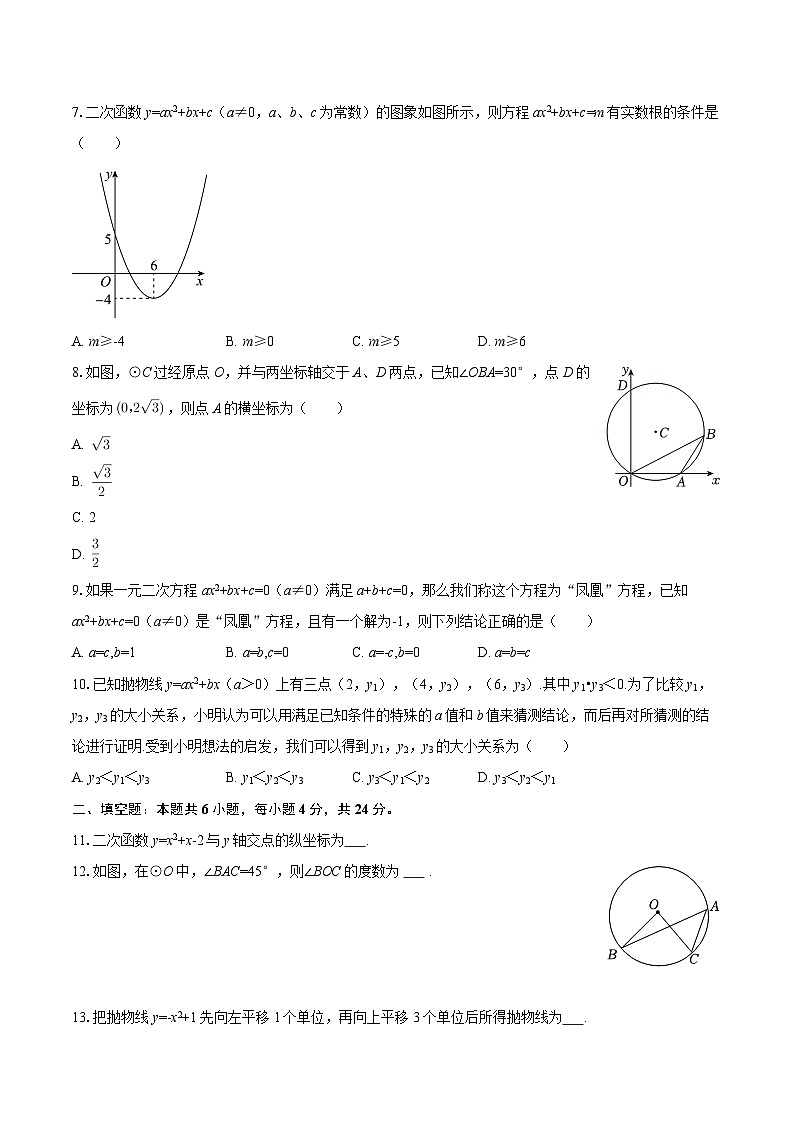 7. 二次函数 y=ax²+bx+c（a≠0，a、b、c 为常数）的图象如图所示，则方程 ax²+bx+c=m 有实数根的条件是
（　　）
y
5
6
O
x
-4
A. m≥-4　B. m≥0　C. m≥5　D. m≥6
8. 如图，⊙C 过经原点 O，并与两坐标轴交于 A、D 两点，已知∠OBA=30°，点 D 的
坐标为 (0,2√3)，则点 A 的横坐标为（　　）
A. √3
B. √3/2
C. 2
D. 3/2
y
D
C
B
O
A
x
9. 如果一元二次方程 ax²+bx+c=0（a≠0）满足 a+b+c=0，那么我们称这个方程为“凤凰”方程，已知
ax²+bx+c=0（a≠0）是“凤凰”方程，且有一个解为-1，则下列结论正确的是（　　）
A. a=c,b=1　B. a=b,c=0　C. a=-c,b=0　D. a=b=c
10. 已知抛物线 y=ax²+bx（a＞0）上有三点（2，y₁），（4，y₂），（6，y₃）.其中 y₁•y₃＜0.为了比较 y₁，
y₂，y₃ 的大小关系，小明认为可以用满足已知条件的特殊的 a 值和 b 值来猜测结论，而后再对所猜测的结
论进行证明.受到小明想法的启发，我们可以得到 y₁，y₂，y₃ 的大小关系为（　　）
A. y₂＜y₁＜y₃　B. y₁＜y₂＜y₃　C. y₃＜y₁＜y₂　D. y₃＜y₂＜y₁
二、填空题：本题共 6 小题，每小题 4 分，共 24 分。
11. 二次函数 y=x²+x-2 与 y 轴交点的纵坐标为___.
12. 如图，在⊙O 中，∠BAC=45°，则∠BOC 的度数为 ___ .
O
A
B
C
13. 把抛物线 y=-x²+1 先向左平移 1 个单位，再向上平移 3 个单位后所得抛物线为___.